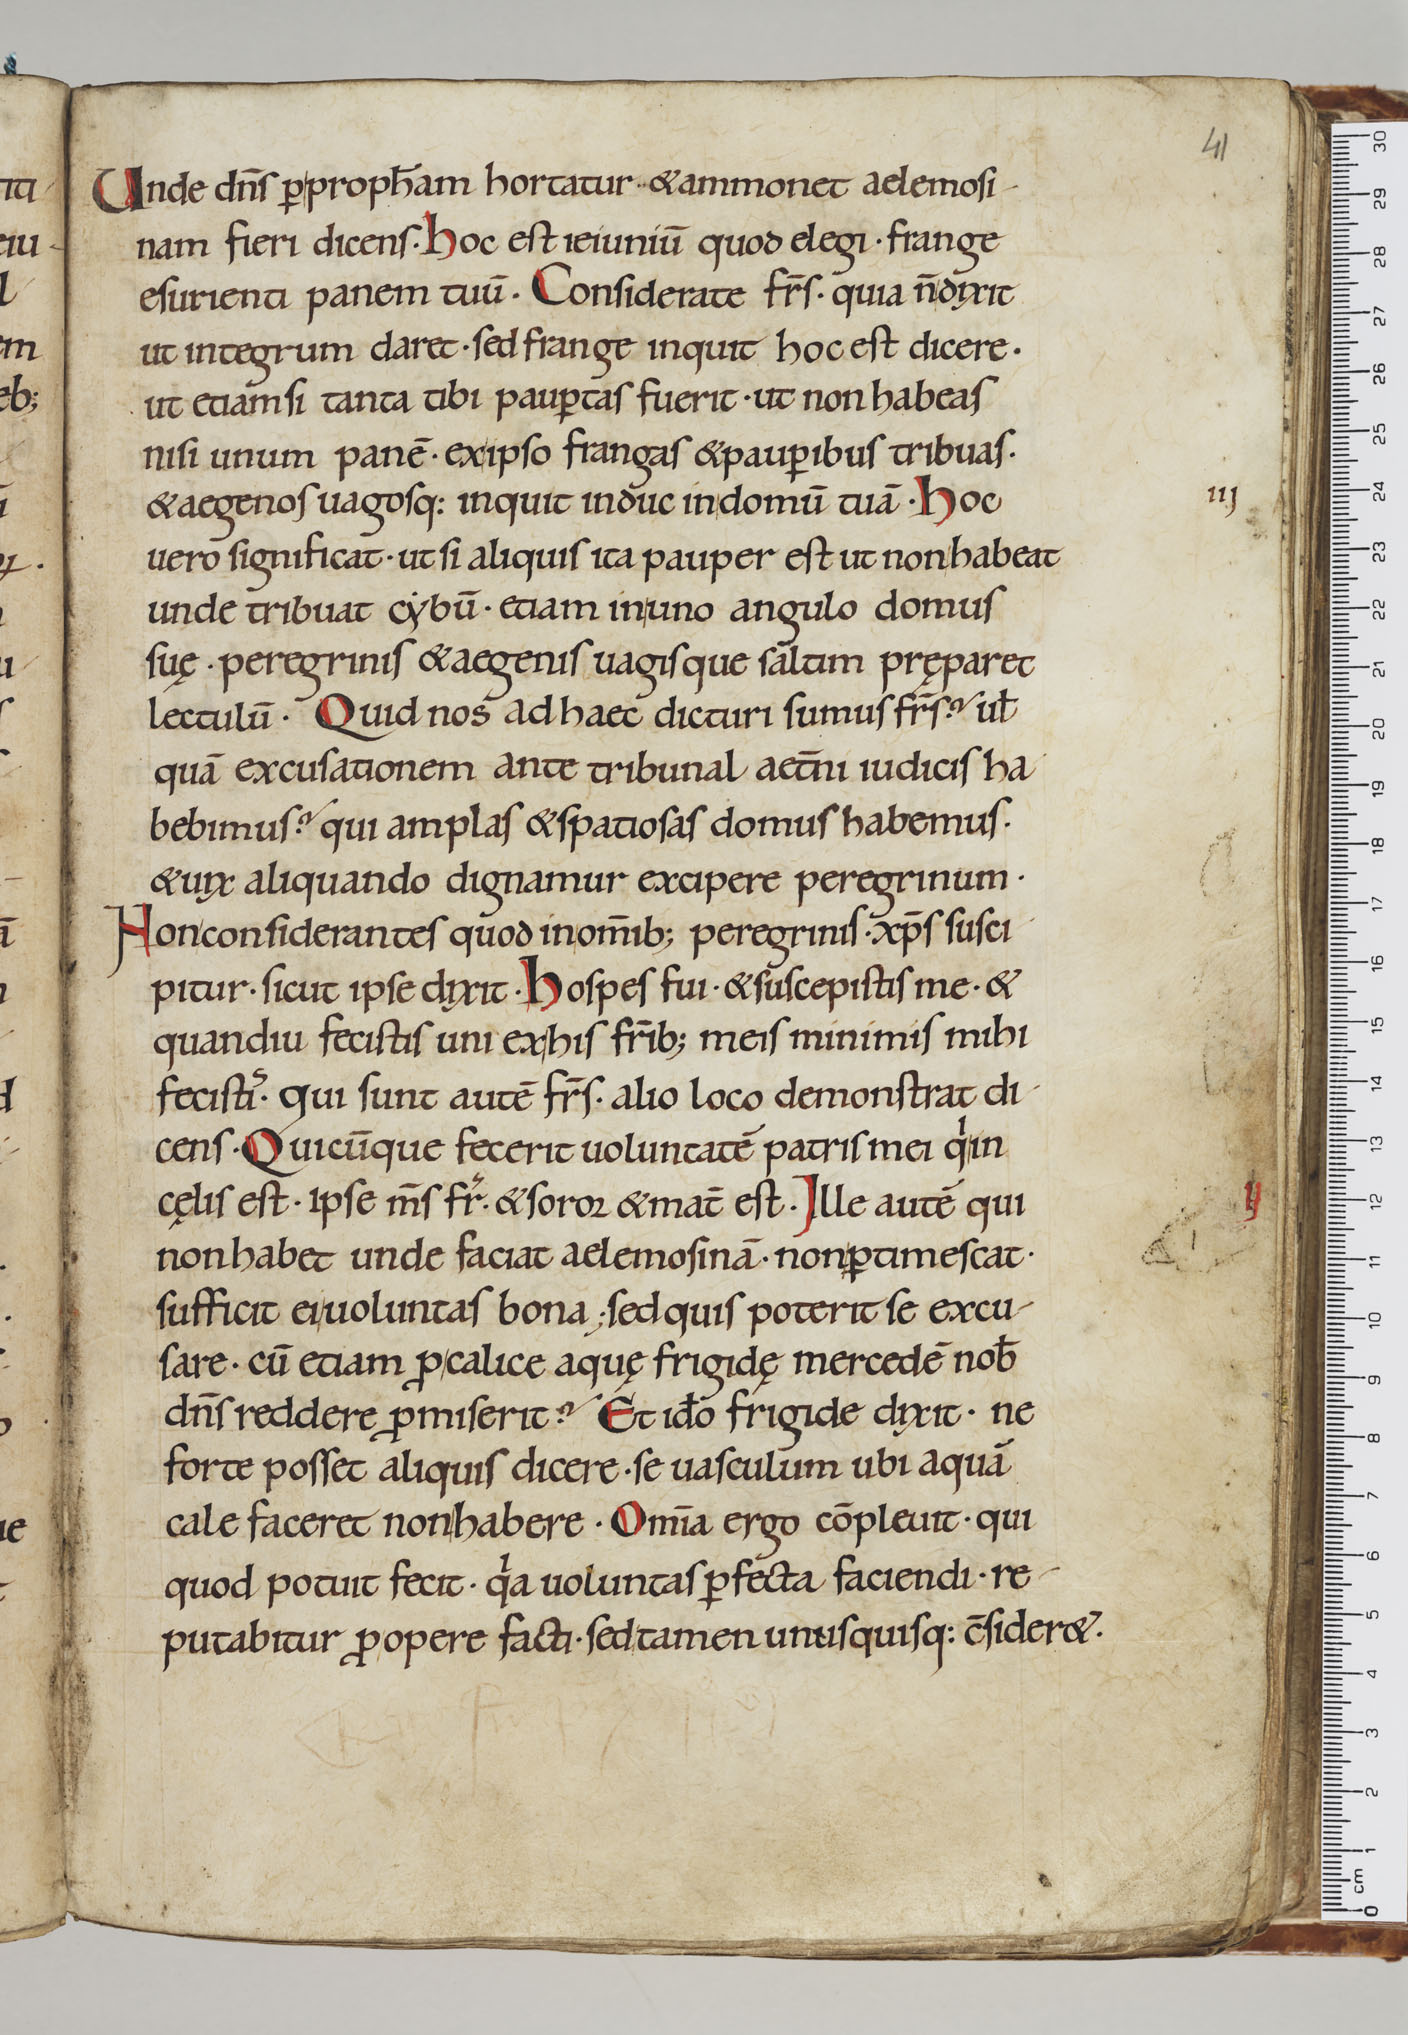 41
Unde dn̄s ꝑ proph̄am hortatur · &ammonet aelemosi-
nam fieri dicens · hoc est ieiuniū quod elegi · frange
esurienti panem tuū · Considerate fr̄s · quia n̄ dixit
ut integrum daret · sed frange inquit hoc est dicere ·
ut etiam si tanta tibi pauꝑtas fuerit · ut non habeas
nisi unum panē · ex ipso frangas &pauꝑibus tribuas ·
&aegenos uagosq: inquit induc in domū tuā · hoc
iij
uero significat · ut si aliquis ita pauper est ut non habeat
unde tribuat cẏbū · etiam in uno angulo domus
suę · peregrinis &aegenis uagisque saltim pręparet
lectulū · Quid nos ad haec dicturi sumus fr̄s? ul̄
quā excusationem ante tribunal aet̄ni iudicis ha
bebimus? qui amplas &spatiosas domus habemus ·
&uix aliquando dignamur excipere peregrinum ·
Non considerantes quod in om̄ib; peregrinis · xp̄s susci
pitur · sicut ipse dixit · hospes fui · &suscepistis me · &
quandiu fecistis uni ex his fr̄ib; meis minimis mihi
fecistiˢ · qui sunt autē fr̄s · alio loco demonstrat di-
cens · Quicūque fecerit uoluntatē patris mei qͥ in
cęlis est · ipse m̄s fr̄ · &soror &mat̄ est · Ille autē qui
ij
non habet unde faciat aelemosinā · non ꝑtimescat ·
sufficit ei uoluntas bona ; sed quis poterit se excu-
sare · cū etiam ꝓ calice aquę frigidę mercedē nob̄
dn̄s reddere ꝓmiserit? Et id̄o frigide dixit · ne
forte posset aliquis dicere · se uasculum ubi aquā
cale faceret non habere · Om̄ia ergo cōpleuit · qui
quod potuit fecit · qͥa uoluntas ꝑfecta faciendi · re-
putabitur ꝓ opere facti · sed tamen unusquisq: c̄sider& ·